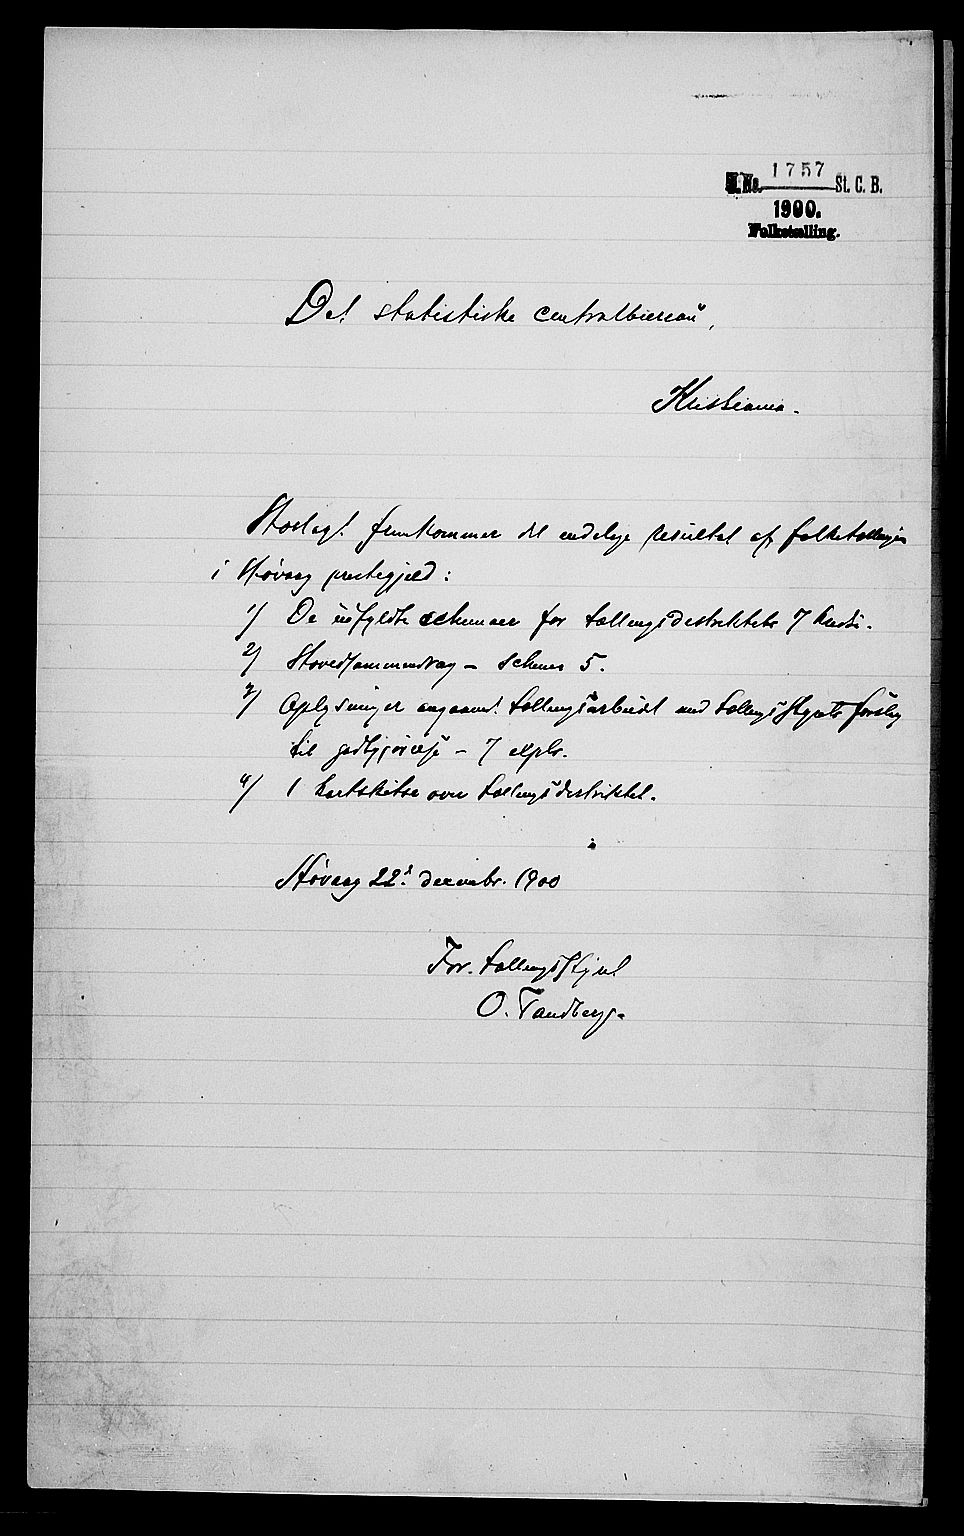 J. No. 1757 St. C. B.
1900.
Folketælling.
Det statistiske centralbüreaü,
Kristiania.
Hoslagt fremkommer det endelige resültat af folketællingen
i Høvaag prestegjeld:
1/ De üdfyldte schemaer for tællingsdistriktets 7 kredse.
2/ Hovedsammendrag – schema 5.
3/ Oplysninger angaaend. tællingsarbeidet med tællingsstyrets forslag
til godtgjørelse – 7 explr.
4/ 1 kartskitse over tællingsdistriktet.
Høvaag 22. decembr. 1900
For tællingsstyret
O. Tandberg.